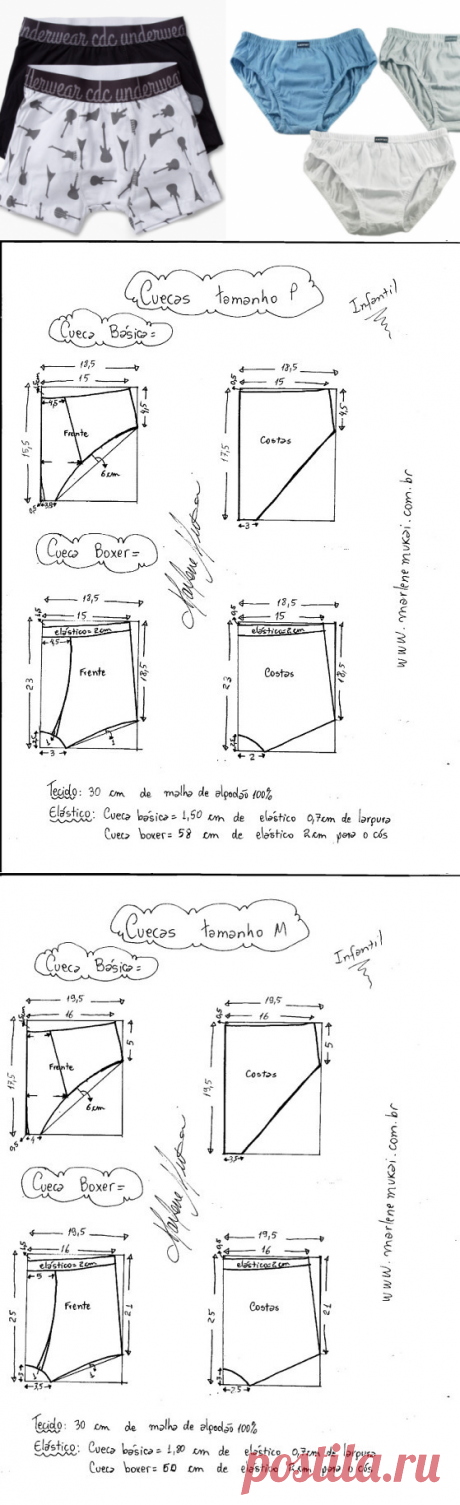 underwear cdc underwear
underwear cdc underwear
Cuecas tamanho P
Infantil
Cueca Básica=
18,5
15
4,5
15,5
4,5
Frente
6cm
3,5
18,5
0,5
15
17,5
4,5
Costas
3
www.marlenemukai.com.br
Marlene Mukai
Cueca Boxer=
18,5
15
elástico=2cm
4,5
23
18,5
Frente
3
18,5
0,5
15
elástico=2cm
23
18,5
Costas
2
Tecido: 30 cm de malha de algodão 100%
Elástico: Cueca básica = 1,50 cm de elástico 0,7cm de largura
Cueca boxer = 58 cm de elástico 2cm para o cós
Cuecas tamanho M
Infantil
Cueca Básica=
19,5
16
5
17,5
Frente
6cm
4
19,5
0,5
16
19,5
5
Costas
3,5
www.marlenemukai.com.br
Marlene Mukai
Cueca Boxer=
19,5
16
elástico=2cm
5
25
21
Frente
3,5
19,5
0,5
16
elástico=2cm
25
21
Costas
2,5
Tecido: 30 cm de malha de algodão 100%
Elástico: Cueca básica = 1,80 cm de elástico 0,7cm de largura
Cueca boxer = 60 cm de elástico 2cm para o cós
postila.ru